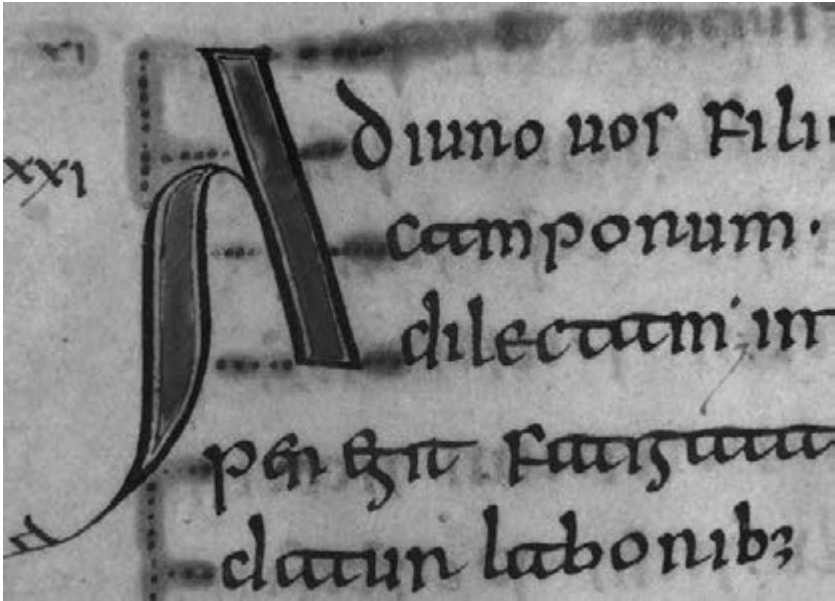 xi
xxi
Adiuro uos fili
camporum·
dilectam in
per egit fatigata
datur laborib;